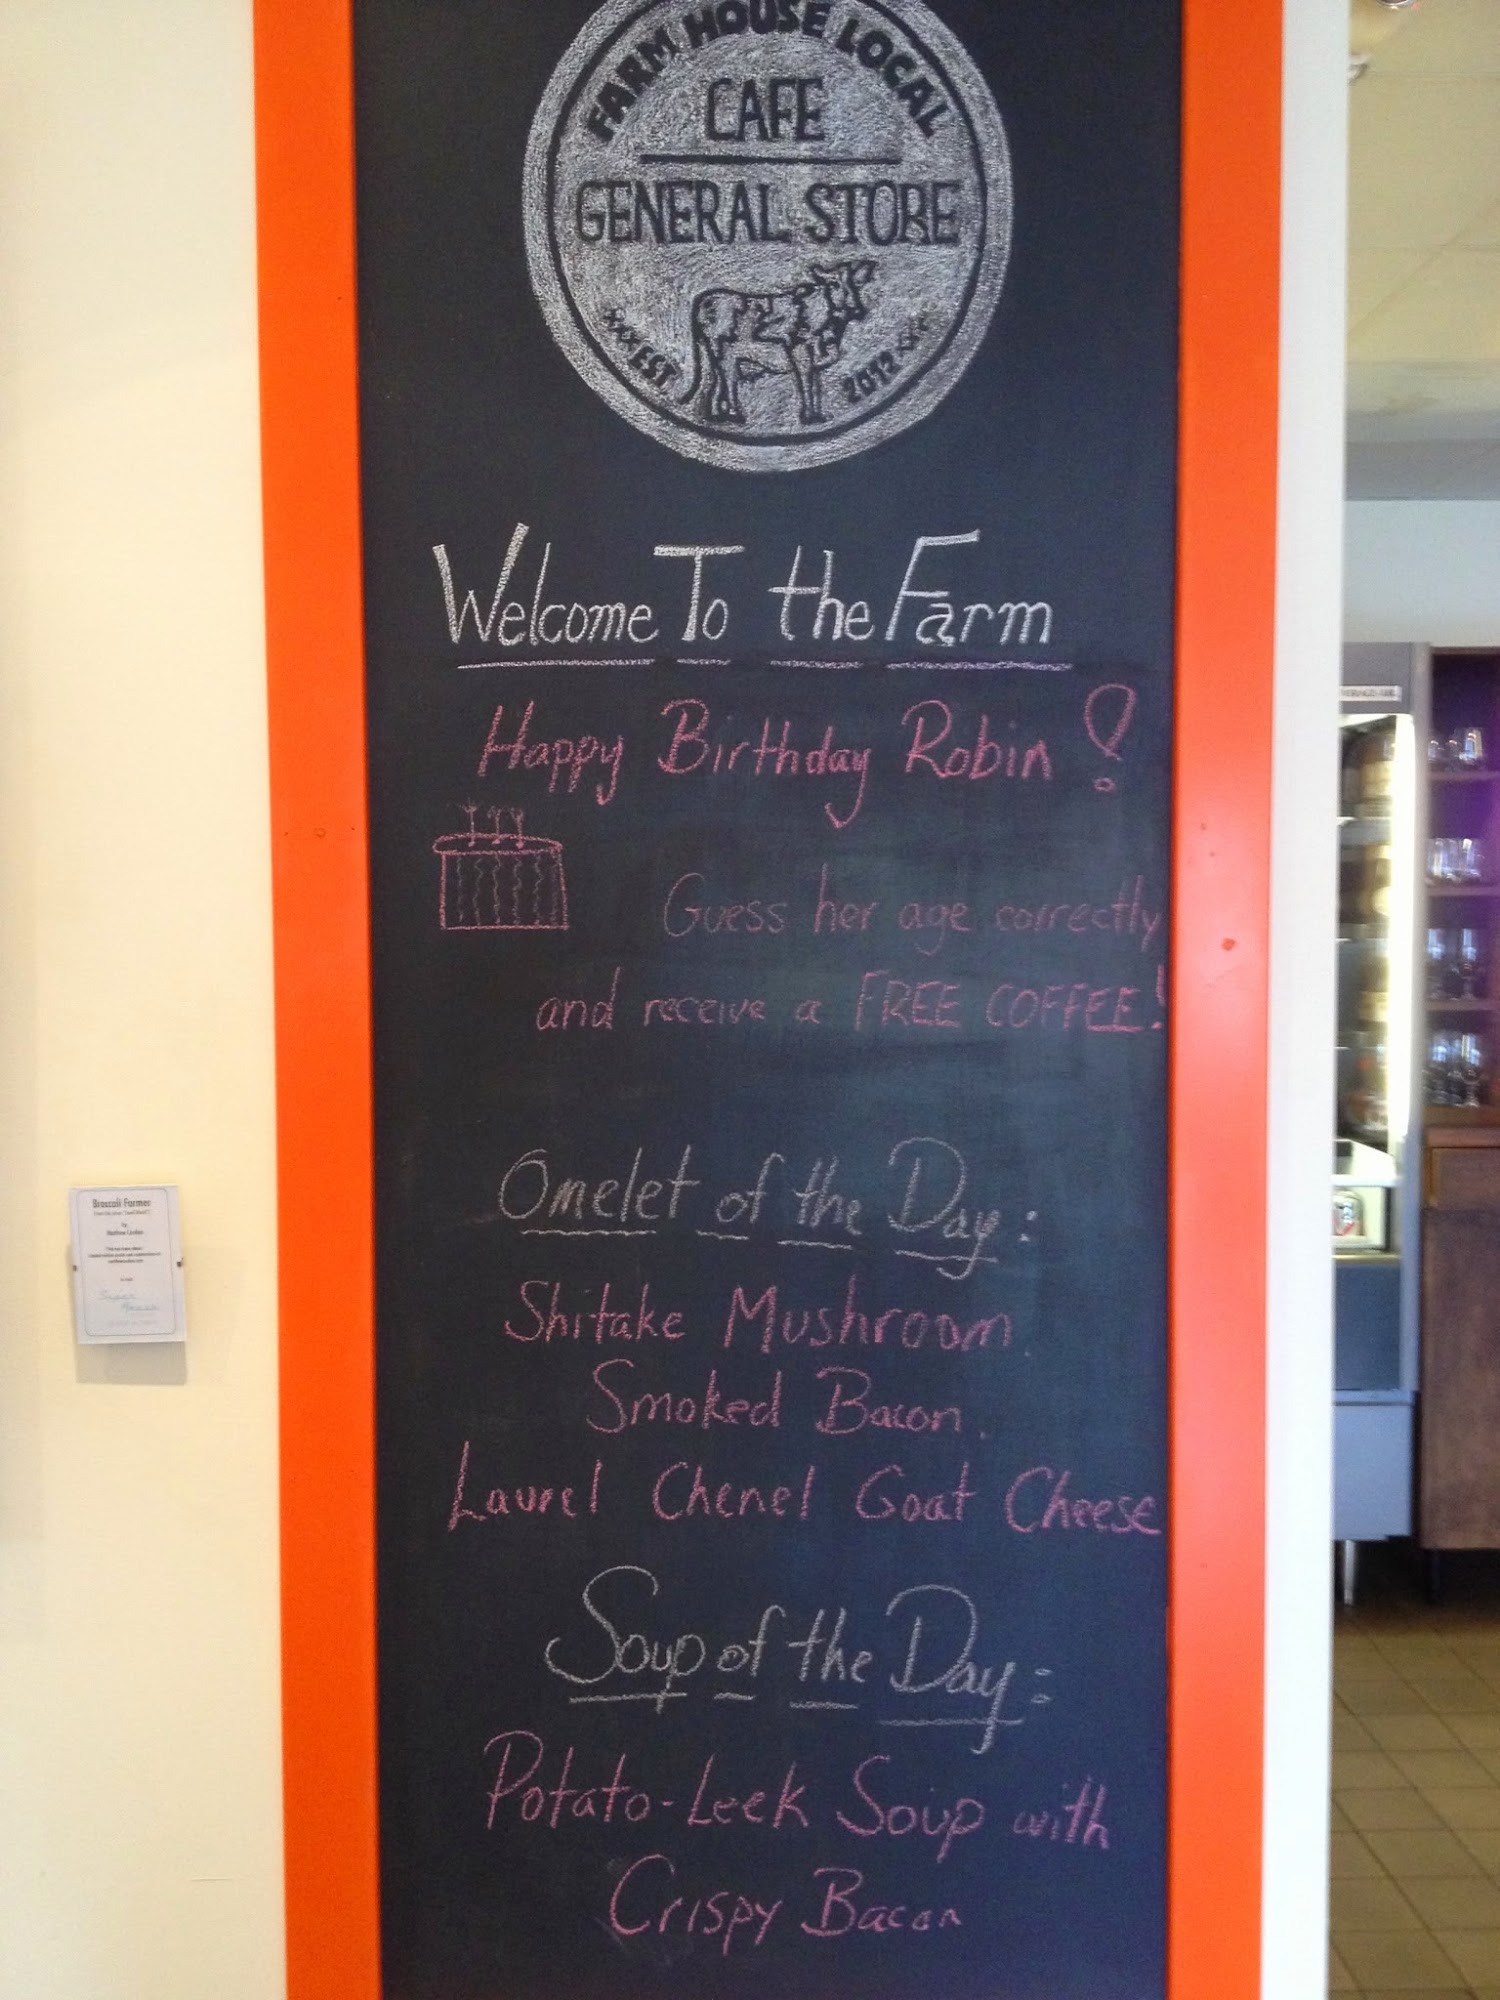 FARM HOUSE LOCAL
CAFE
GENERAL STORE
EST. 2012
Welcome To the Farm
Happy Birthday Robin!
Guess her age correctly
and receive a FREE COFFEE!
Omelet of the Day:
Shitake Mushroom.
Smoked Bacon.
Laurel Chenel Goat Cheese
Soup of the Day:
Potato-Leek Soup with
Crispy Bacon
Broccoli Farmer
by